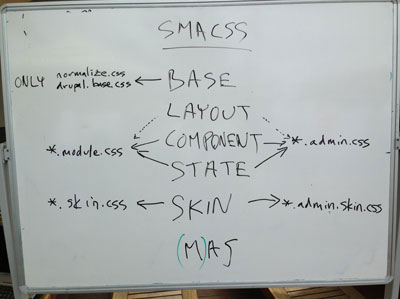 SMACSS
ONLY normalize.css ← BASE
drupal.base.css
LAYOUT
*.module.css COMPONENT *.admin.css
STATE
*.skin.css ← SKIN → *.admin.skin.css
(M)AS